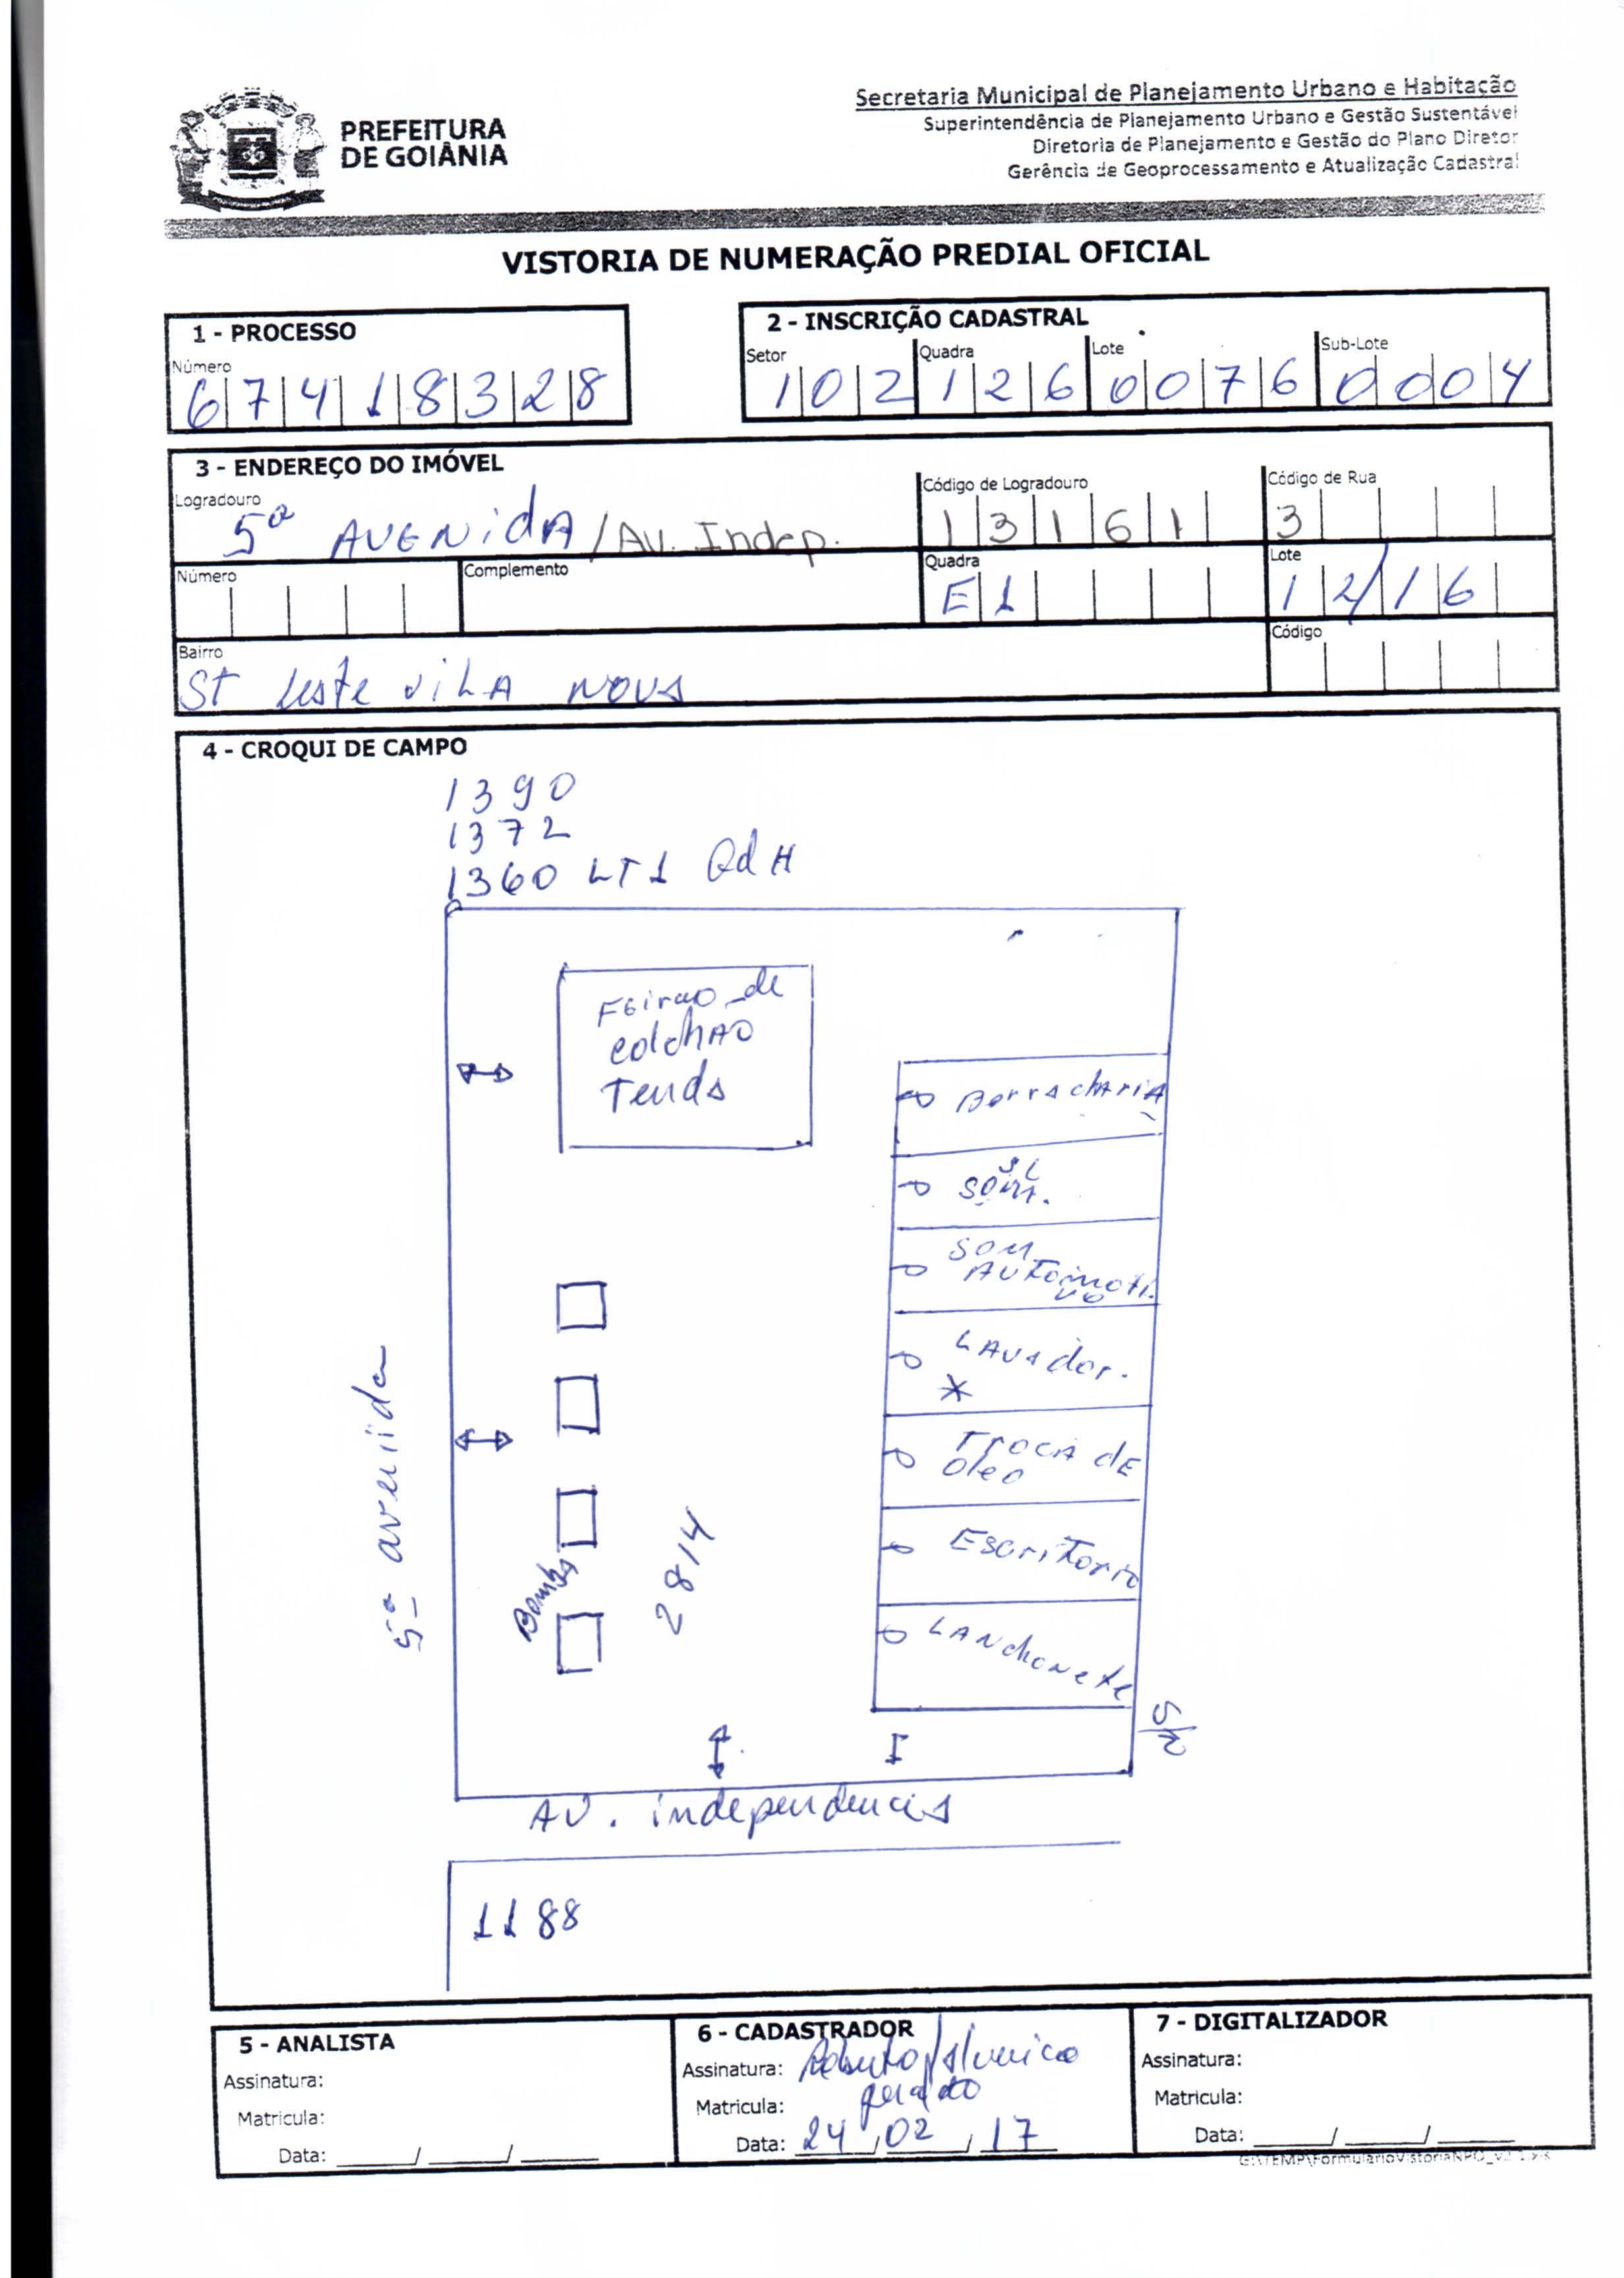 PREFEITURA
DE GOIÂNIA
Secretaria Municipal de Planejamento Urbano e Habitação
Superintendência de Planejamento Urbano e Gestão Sustentável
Diretoria de Planejamento e Gestão do Plano Diretor
Gerência de Geoprocessamento e Atualização Cadastral
VISTORIA DE NUMERAÇÃO PREDIAL OFICIAL
1 - PROCESSO
Número
67418328
2 - INSCRIÇÃO CADASTRAL
Setor Quadra Lote Sub-Lote
102 126 0076 0004
3 - ENDEREÇO DO IMÓVEL
Logradouro Código de Logradouro Código de Rua
5ª AVENidA / Av. Indep. 13161 3
Número Complemento Quadra Lote
E1 12/16
Bairro Código
St Leste viLA NOVA
4 - CROQUI DE CAMPO
1390
1372
1360 LT1 Qd H
Feirao de
colchAO
Tenda
BorrachariA
SL
som.
SOM
AUTOmoti.
vo
LAVador.
*
TrocA dE
óleo
EscriTorio
LANchonete
5ª avenida
Bombas
2814
S/N
AV. independencia
1188
5 - ANALISTA
Assinatura:
Matricula:
Data: ____/____/____
6 - CADASTRADOR
Assinatura: Roberto/
Matricula:
Data: 24/02/17
7 - DIGITALIZADOR
Assinatura:
Matricula:
Data: ____/____/____